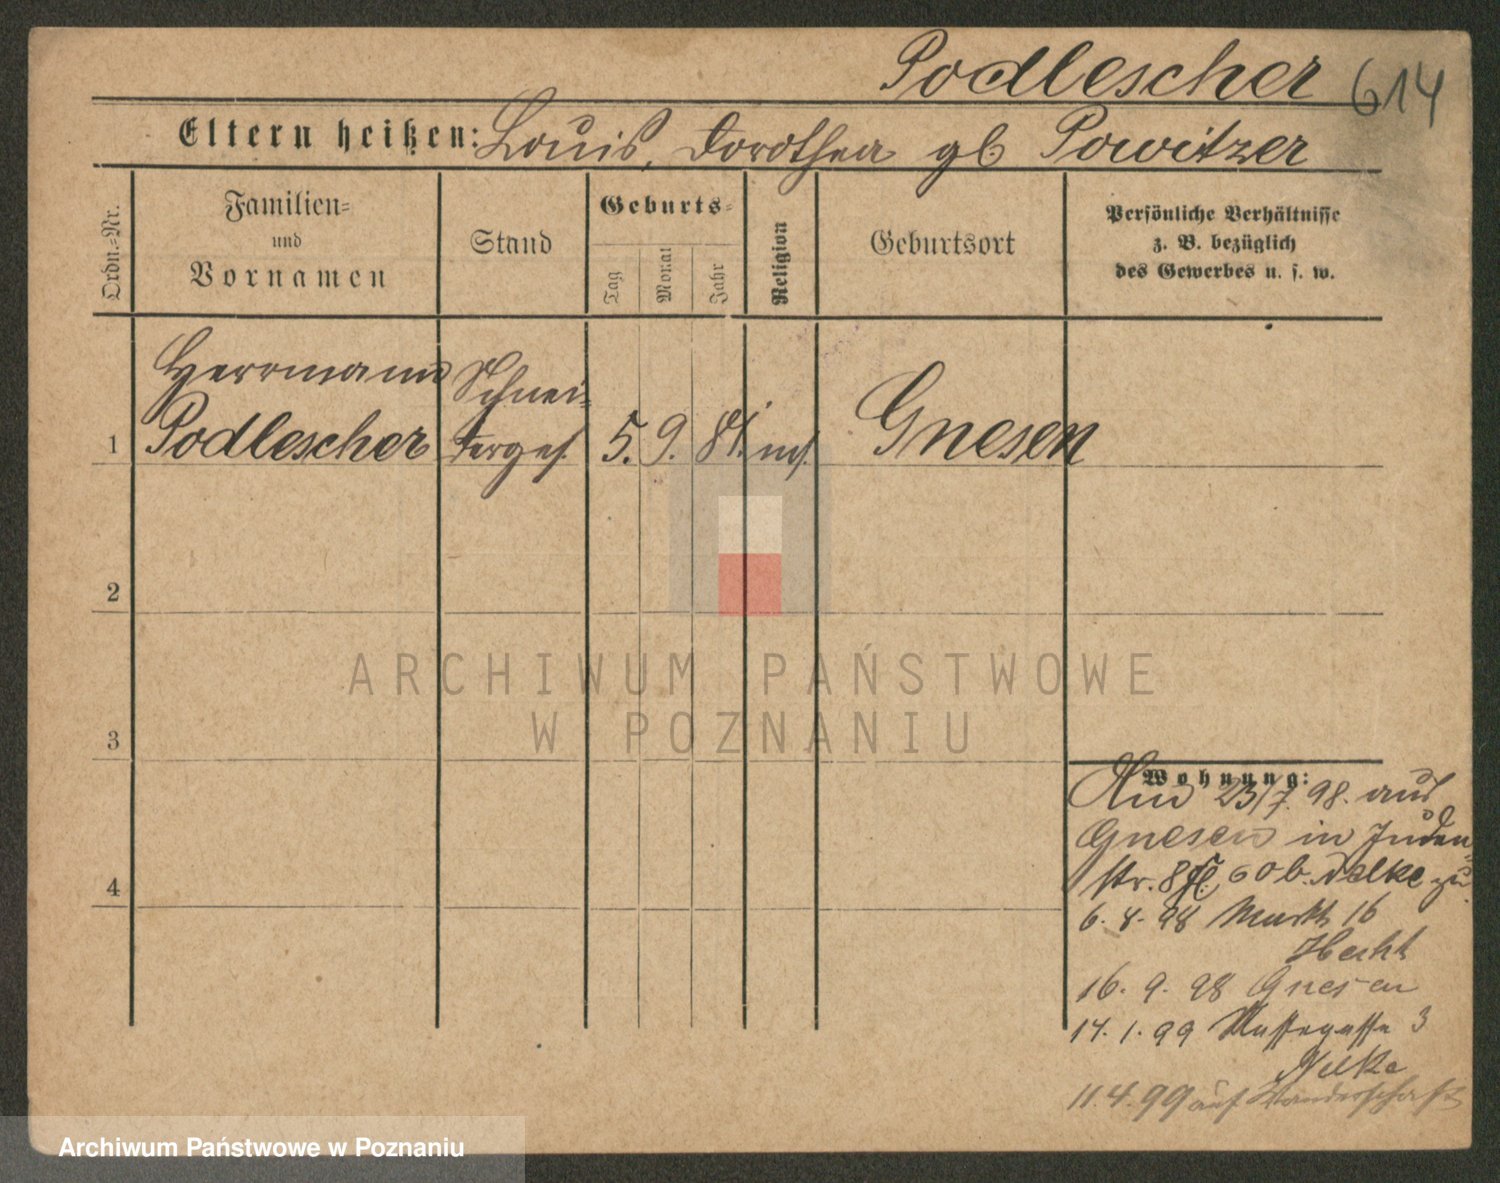 Podlescher 614
Eltern heißen: Louis, Dorothea gb. Powitzer
Ordn.=Nr.
Familien=
und
Vornamen
Stand
Geburts=
Tag
Monat
Jahr
Religion
Geburtsort
Persönliche Verhältnisse
z. B. bezüglich
des Gewerbes u. s. w.
1
Herrmann
Podlescher
Schnei=
derges.
5. 9. 81. mos.
Gnesen
2
3
4
Wohnung:
23/7. 98. aus
Gnesen in Juden=
str. 8 b. Nelke zu
6. 8. 98 Markt 16
Hecht
16. 9. 98 Gnesen
14. 1. 99 Wassergasse 3
Nelke
11.4.99 auf Wanderschaft
ARCHIWUM PAŃSTWOWE
W POZNANIU
Archiwum Państwowe w Poznaniu